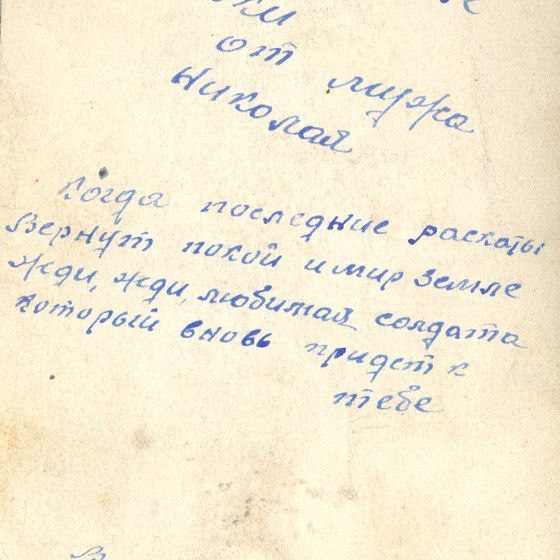 от мужа
Николая
Когда последние раскаты
Вернут покой и мир земле
Жди, жди, любимая солдата
который вновь придет к
тебе